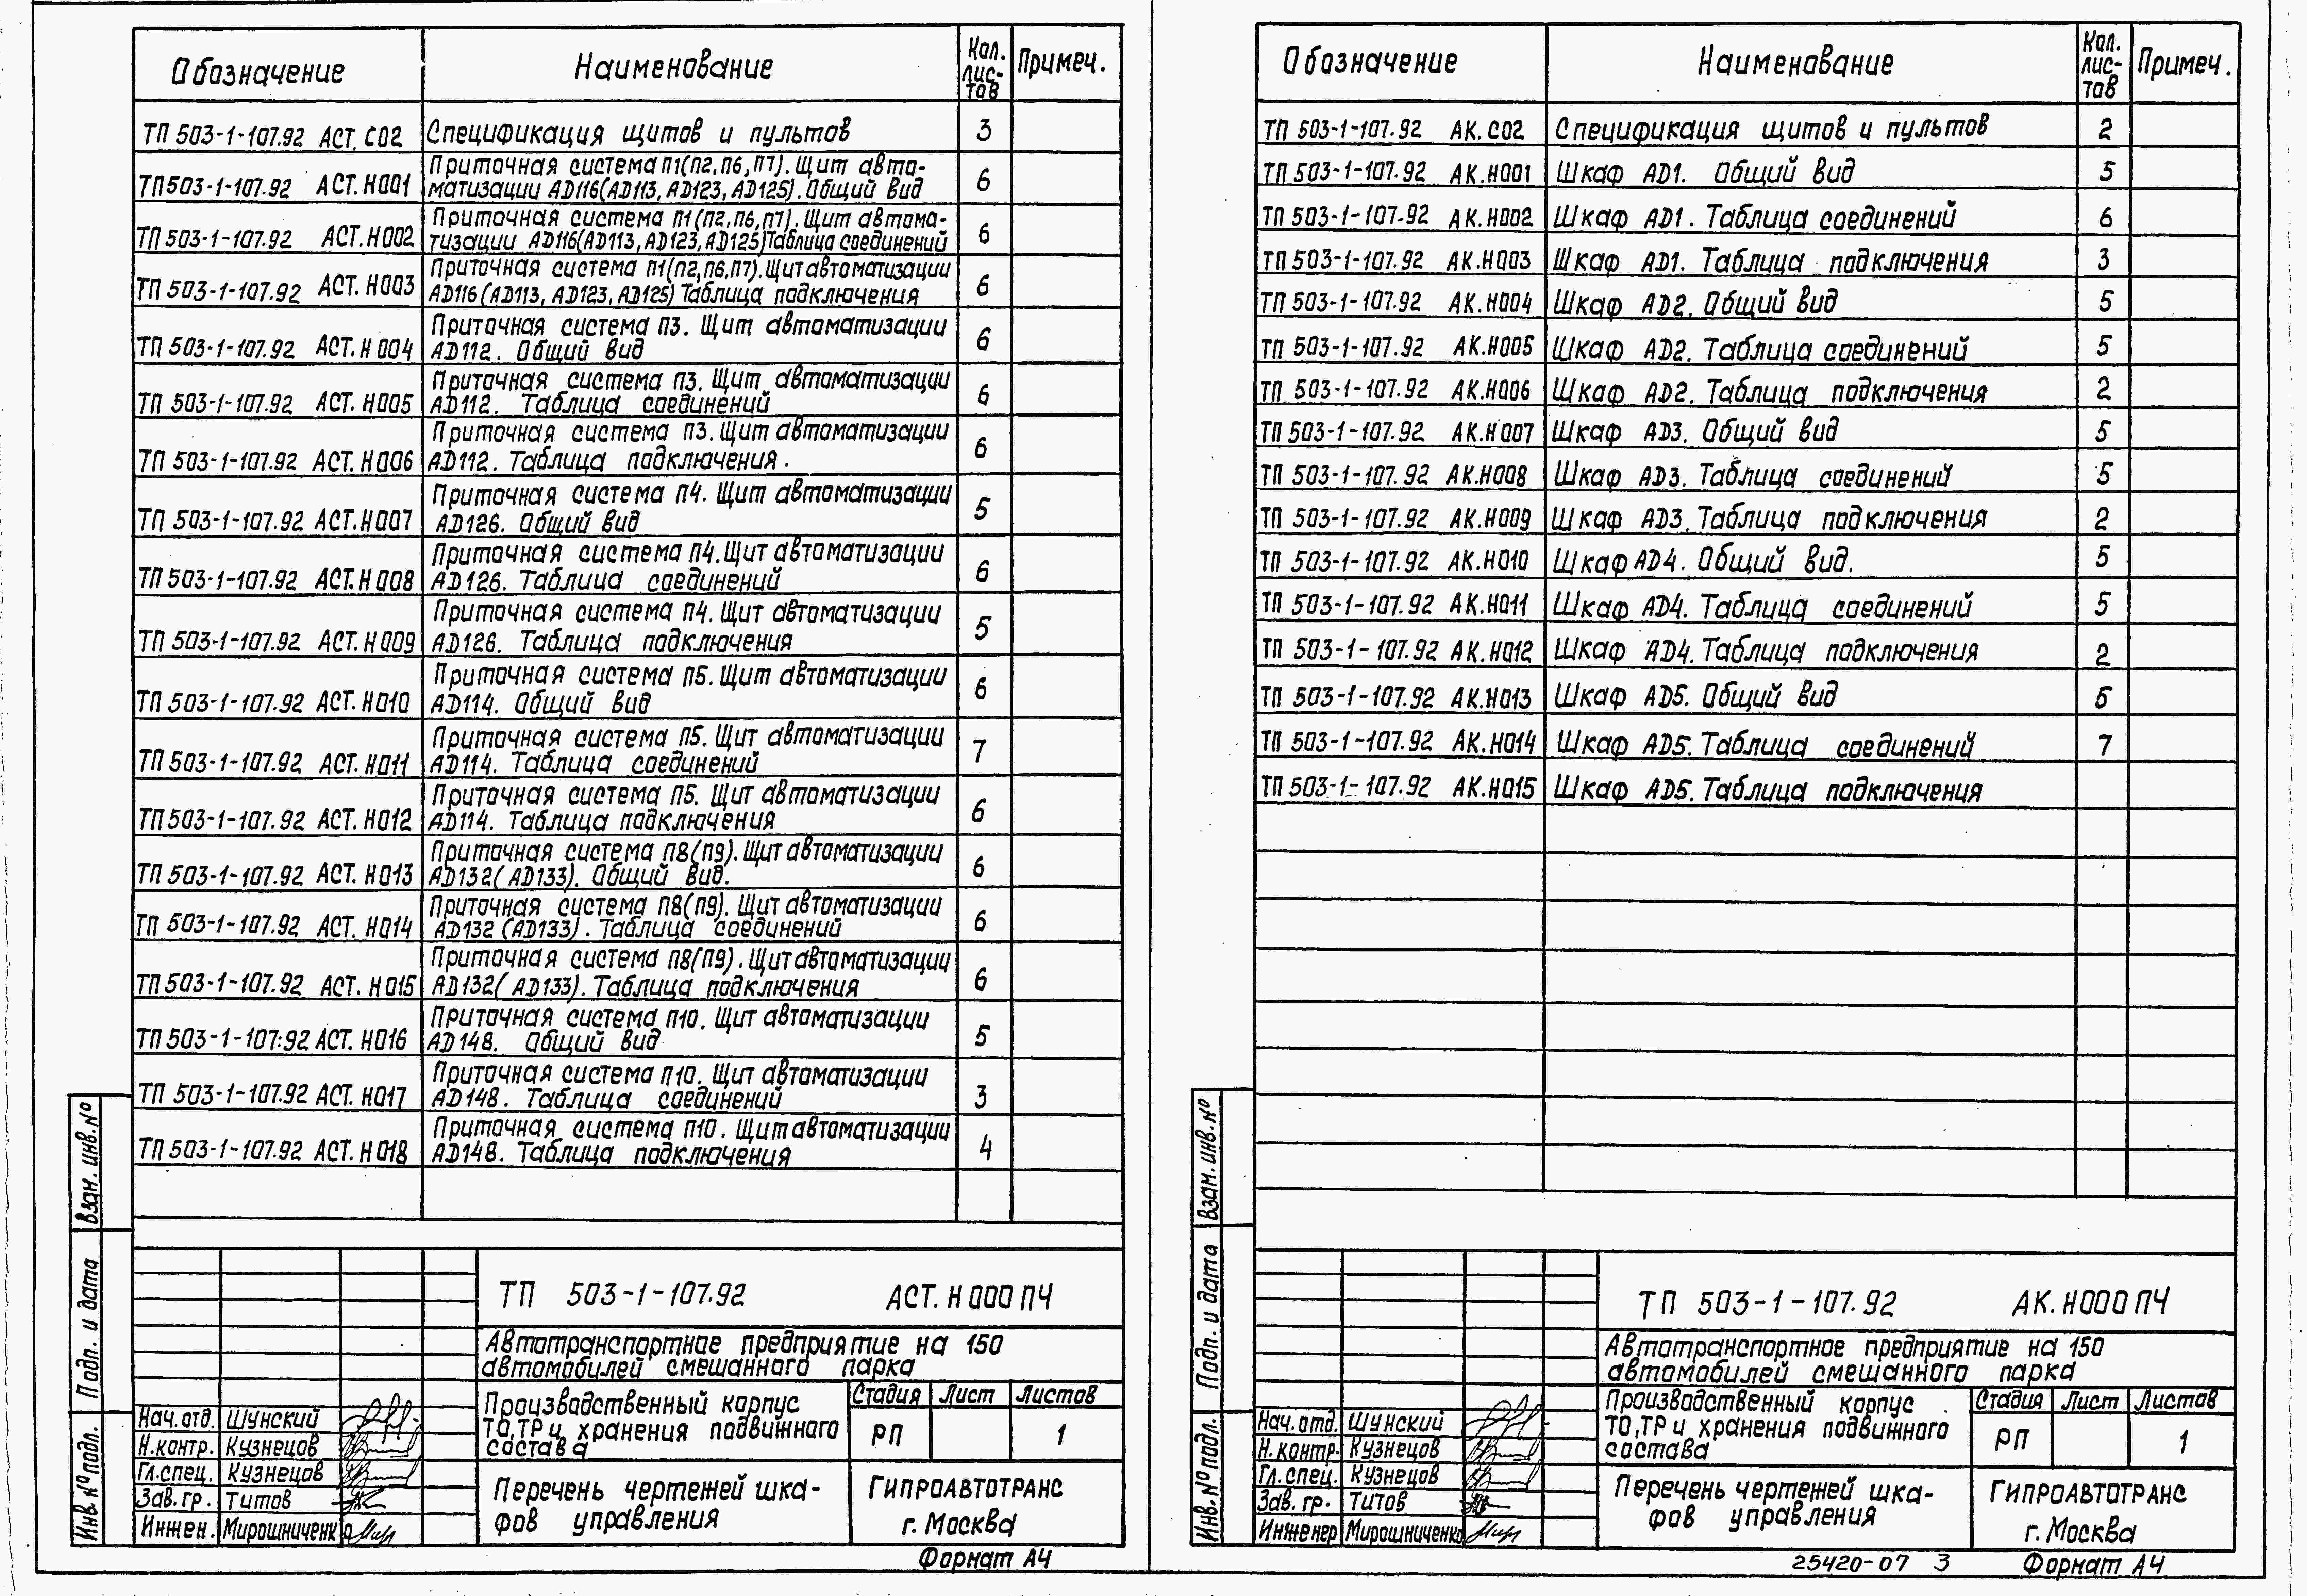 Обозначение Наименование Кол. лис-тов Примеч.
ТП 503-1-107.92 АСТ. С02 Спецификация щитов и пультов 3
ТП 503-1-107.92 АСТ. Н001 Приточная система П1(П2, П6, П7). Щит авто-
матизации AD116(AD113, AD123, AD125). Общий вид 6
ТП 503-1-107.92 АСТ. Н002 Приточная система П1(П2, П6, П7). Щит автома-
тизации AD116(AD113, AD123, AD125)Таблица соединений 6
ТП 503-1-107.92 АСТ. Н003 Приточная система П1(П2, П6, П7). Щит автоматизации
AD116(AD113, AD123, AD125) Таблица подключения 6
ТП 503-1-107.92 АСТ. Н004 Приточная система П3. Щит автоматизации
AD112. Общий вид 6
ТП 503-1-107.92 АСТ. Н005 Приточная система П3. Щит автоматизации
AD112. Таблица соединений 6
ТП 503-1-107.92 АСТ. Н006 Приточная система П3. Щит автоматизации
AD112. Таблица подключения. 6
ТП 503-1-107.92 АСТ. Н007 Приточная система П4. Щит автоматизации
AD126. Общий вид 5
ТП 503-1-107.92 АСТ. Н008 Приточная система П4. Щит автоматизации
AD126. Таблица соединений 6
ТП 503-1-107.92 АСТ. Н009 Приточная система П4. Щит автоматизации
AD126. Таблица подключения 5
ТП 503-1-107.92 АСТ. Н010 Приточная система П5. Щит автоматизации
AD114. Общий вид 6
ТП 503-1-107.92 АСТ. Н011 Приточная система П5. Щит автоматизации
AD114. Таблица соединений 7
ТП 503-1-107.92 АСТ. Н012 Приточная система П5. Щит автоматизации
AD114. Таблица подключения 6
ТП 503-1-107.92 АСТ. Н013 Приточная система П8(П9). Щит автоматизации
AD132(AD133). Общий вид. 6
ТП 503-1-107.92 АСТ. Н014 Приточная система П8(П9). Щит автоматизации
AD132 (AD133). Таблица соединений 6
ТП 503-1-107.92 АСТ. Н015 Приточная система П8(П9). Щит автоматизации
AD132(AD133). Таблица подключения 6
ТП 503-1-107.92 АСТ. Н016 Приточная система П10. Щит автоматизации
AD148. Общий вид 5
ТП 503-1-107.92 АСТ. Н017 Приточная система П10. Щит автоматизации
AD148. Таблица соединений 3
ТП 503-1-107.92 АСТ. Н018 Приточная система П10. Щит автоматизации
AD148. Таблица подключения 4
Взам. инв. №
Подп. и дата
Инв. № подл.
ТП 503-1-107.92 АСТ. Н000 ПЧ
Автотранспортное предприятие на 150
автомобилей смешанного парка
Производственный корпус
ТО, ТР и хранения подвижного
состава
Стадия Лист Листов
РП 1
Нач. отд. Шунский
Н. контр. Кузнецов
Гл. спец. Кузнецов
Зав. гр. Титов
Инжен. Мирошниченко
Перечень чертежей шка-
фов управления
ГИПРОАВТОТРАНС
г. Москва
Формат А4
Обозначение Наименование Кол. лис-тов Примеч.
ТП 503-1-107.92 АК. С02 Спецификация щитов и пультов 2
ТП 503-1-107.92 АК.Н001 Шкаф AD1. Общий вид 5
ТП 503-1-107.92 АК.Н002 Шкаф AD1. Таблица соединений 6
ТП 503-1-107.92 АК.Н003 Шкаф AD1. Таблица подключения 3
ТП 503-1-107.92 АК.Н004 Шкаф AD2. Общий вид 5
ТП 503-1-107.92 АК.Н005 Шкаф AD2. Таблица соединений 5
ТП 503-1-107.92 АК.Н006 Шкаф AD2. Таблица подключения 2
ТП 503-1-107.92 АК.Н007 Шкаф AD3. Общий вид 5
ТП 503-1-107.92 АК.Н008 Шкаф AD3. Таблица соединений 5
ТП 503-1-107.92 АК.Н009 Шкаф AD3. Таблица подключения 2
ТП 503-1-107.92 АК.Н010 Шкаф AD4. Общий вид. 5
ТП 503-1-107.92 АК.Н011 Шкаф AD4. Таблица соединений 5
ТП 503-1-107.92 АК.Н012 Шкаф AD4. Таблица подключения 2
ТП 503-1-107.92 АК.Н013 Шкаф AD5. Общий вид 5
ТП 503-1-107.92 АК.Н014 Шкаф AD5. Таблица соединений 7
ТП 503-1-107.92 АК.Н015 Шкаф AD5. Таблица подключения
Взам. инв. №
Подп. и дата
Инв. № подл.
ТП 503-1-107.92 АК. Н000 ПЧ
Автотранспортное предприятие на 150
автомобилей смешанного парка
Производственный корпус
ТО, ТР и хранения подвижного
состава
Стадия Лист Листов
РП 1
Нач. отд. Шунский
Н. контр. Кузнецов
Гл. спец. Кузнецов
Зав. гр. Титов
Инженер Мирошниченко
Перечень чертежей шка-
фов управления
ГИПРОАВТОТРАНС
г. Москва
25420-07 3 Формат А4